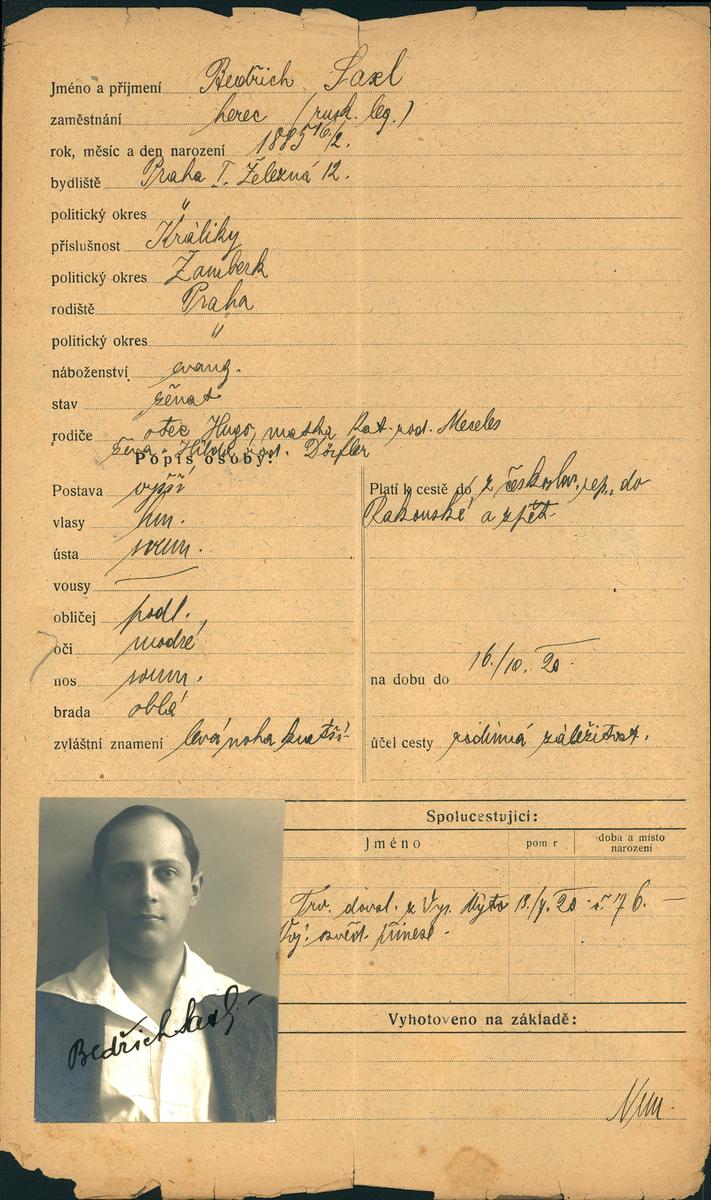 Jméno a příjmení Bedřich Saxl
zaměstnání herec (rusk. leg.)
rok, měsíc a den narození 1885 16/2.
bydliště Praha I. Železná 12.
politický okres "
příslušnost Králiky
politický okres Žamberk
rodiště Praha
politický okres "
náboženství evang.
stav ženat
rodiče otec Hugo, matka Kat. rod. Meceles
žena Hilda rod. Dörfler
Popis osoby:
Postava vyšší
vlasy hn.
ústa soum.
vousy —
obličej podl.
oči modré
nos soum.
brada oblá
zvláštní znamení levá noha kratší
Platí k cestě do z českoslov. rep. do
Rakouské a zpět.
na dobu do 16./10. 20
účel cesty rodinná záležitost.
Spolucestující:
Jméno pom r doba a místo
narození
Trv. dovol. z Vys. Mýto 13./7. 20 č. 76. —
Voj. osvěd. přinesl.
Vyhotoveno na základě:
Bedřich Saxl